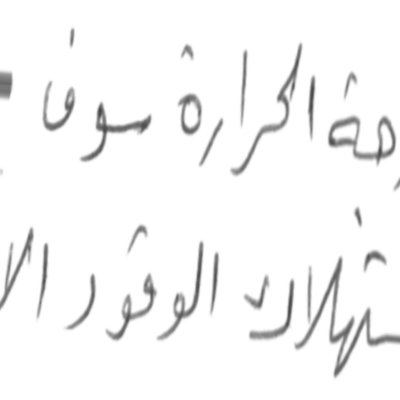 رجة الحرارة سوف
ستهلاك الوقود الا